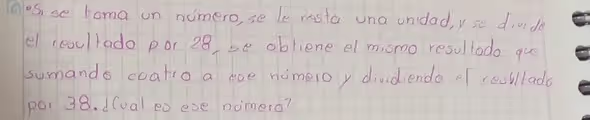 "Si se toma un número, se le resta una unidad, y se divide
el resultado por 28, se obtiene el mismo resultado que
sumando cuatro a ese número y dividiendo el resultado
por 38. ¿Cual es ese número?